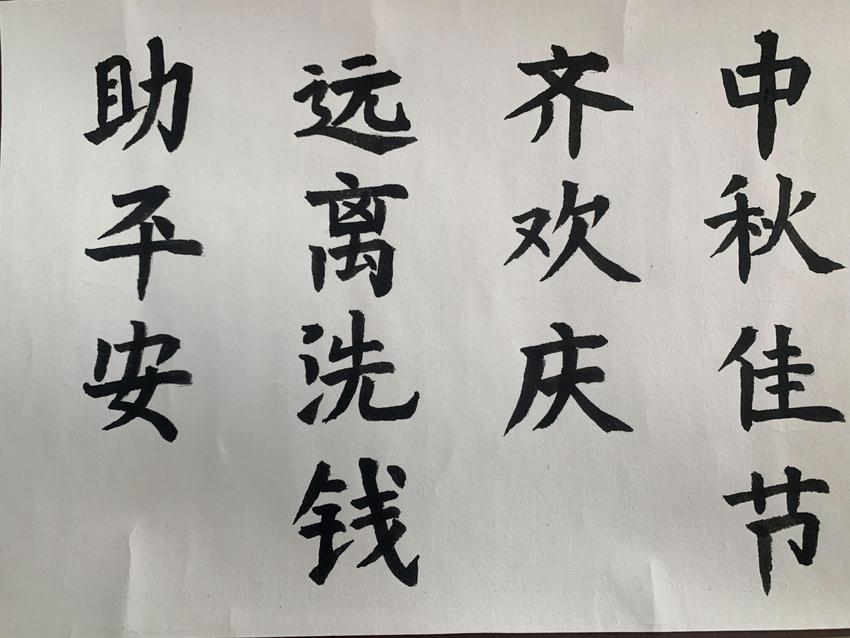 中秋佳节
齐欢庆
远离洗钱
助平安